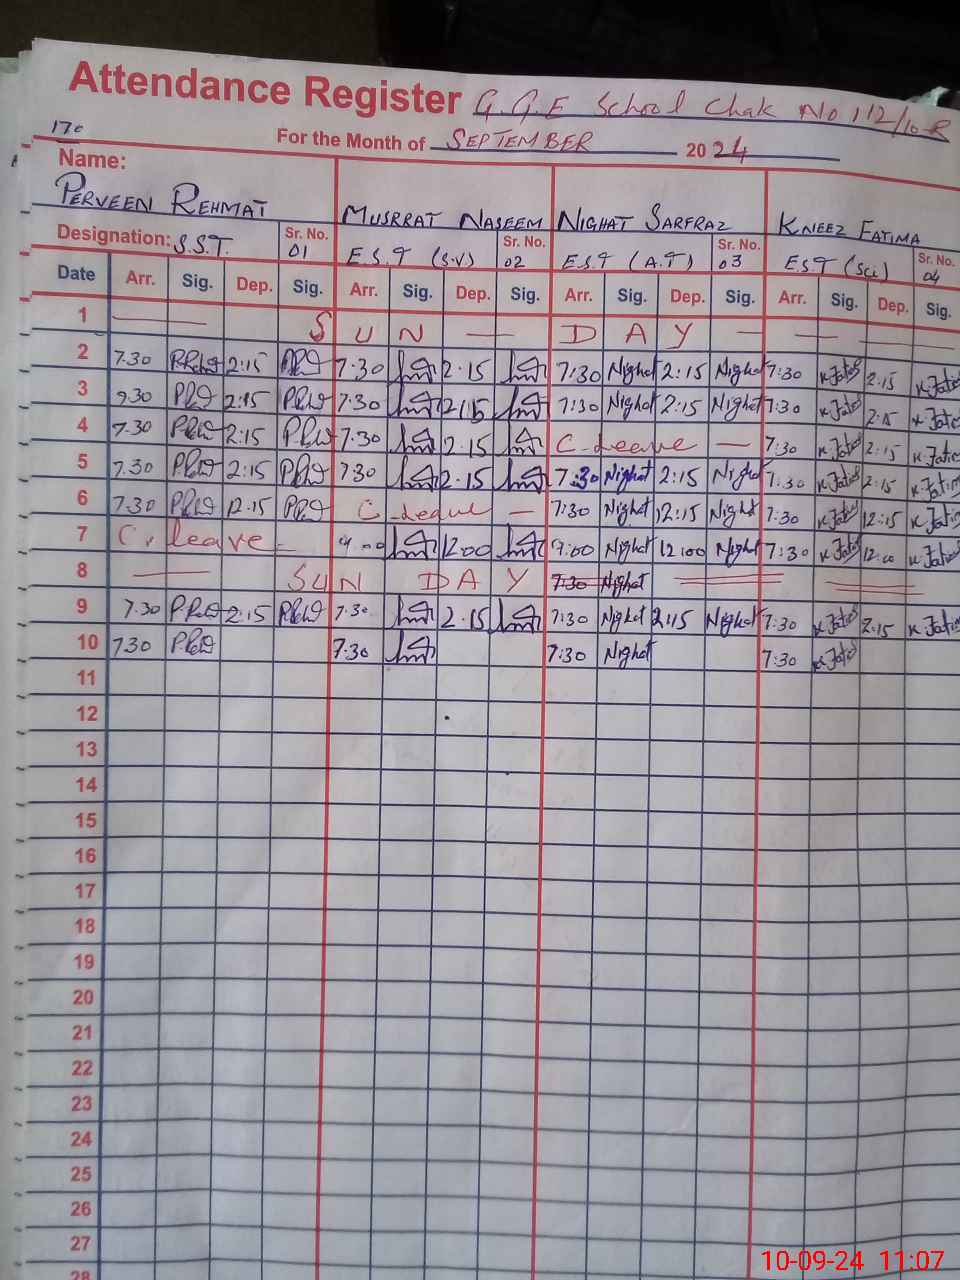 Attendance Register G.G.E School Chak No 112/10-R
170
For the Month of SEPTEMBER 2024
Name:
PERVEEN REHMAT MUSRRAT NASEEM NIGHAT SARFRAZ KNEEZ FATIMA
Designation: S.S.T. Sr. No. 01 E.S.T (S.V) Sr. No. 02 E.S.T (A.T) Sr. No. 03 E.S.T (Sci) Sr. No. 04
Date Arr. Sig. Dep. Sig. Arr. Sig. Dep. Sig. Arr. Sig. Dep. Sig. Arr. Sig. Dep. Sig.
1 — S U N — D A Y — —
2 7.30 2:15 7.30 2.15 7:30 Nighat 2:15 Nighat 7:30 K Fatima 2:15 K Fatima
3 7.30 2:15 7:30 2:15 7:30 Nighat 2:15 Nighat 7:30 K Fatima 2:15 K Fatima
4 7.30 2:15 7.30 2.15 C-Leave — 7:30 K Fatima 2:15 K Fatima
5 7.30 2:15 7.30 2.15 7:30 Nighat 2:15 Nighat 7:30 K Fatima 2:15 K Fatima
6 7.30 12.15 C-Leave — 7:30 Nighat 12:15 Nighat 7:30 K Fatima 12:15 K Fatima
7 C. leave - 9.00 12.00 9:00 Nighat 12:00 Nighat 7:30 K Fatima 12:00 K Fatima
8 — SUN DAY 7:30 Nighat
9 7.30 2.15 7.30 2.15 7:30 Nighat 2:15 Nighat 7:30 K Fatima 2:15 K Fatima
10 7.30 7:30 7:30 Nighat 7:30 K Fatima
11
12
13
14
15
16
17
18
19
20
21
22
23
24
25
26
27
28
10-09-24 11:07